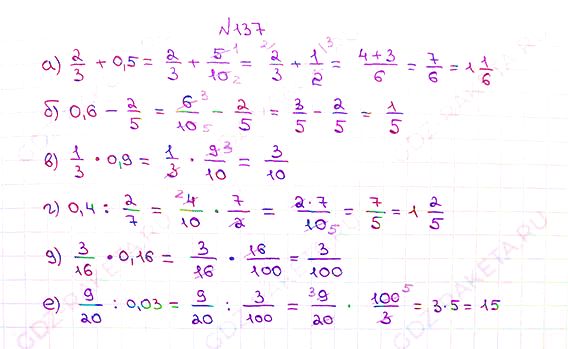 №137
а) 2/3 + 0,5 = 2/3 + 5 1/10 2 = 2/ 2/3 + 1/2 /3 = 4+3/6 = 7/6 = 1 1/6
б) 0,6 − 2/5 = 6 3/10 5 − 2/5 = 3/5 − 2/5 = 1/5
в) 1/3 · 0,9 = 1/3 · 9 3/10 = 3/10
г) 0,4 : 2/7 = 2 4/10 · 7/2 = 2·7/10 5 = 7/5 = 1 2/5
д) 3/16 · 0,16 = 3/16 · 16/100 = 3/100
е) 9/20 : 0,03 = 9/20 : 3/100 = 3 9/20 · 100 5/3 = 3·5 = 15
GDZ-RAKETA.RU
GDZ-RAKETA.RU
GDZ-RAKETA.RU